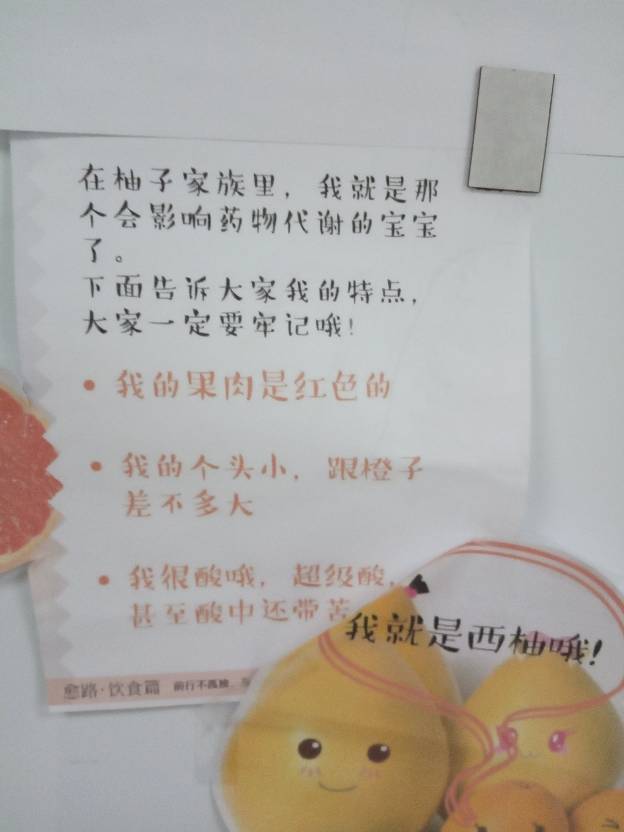 在柚子家族里，我就是那
个会影响药物代谢的宝宝
了。
下面告诉大家我的特点，
大家一定要牢记哦！
• 我的果肉是红色的
• 我的个头小，跟橙子
差不多大
• 我很酸哦，超级酸，
甚至酸中还带苦
我就是西柚哦!
愈路·饮食篇 前行不孤独